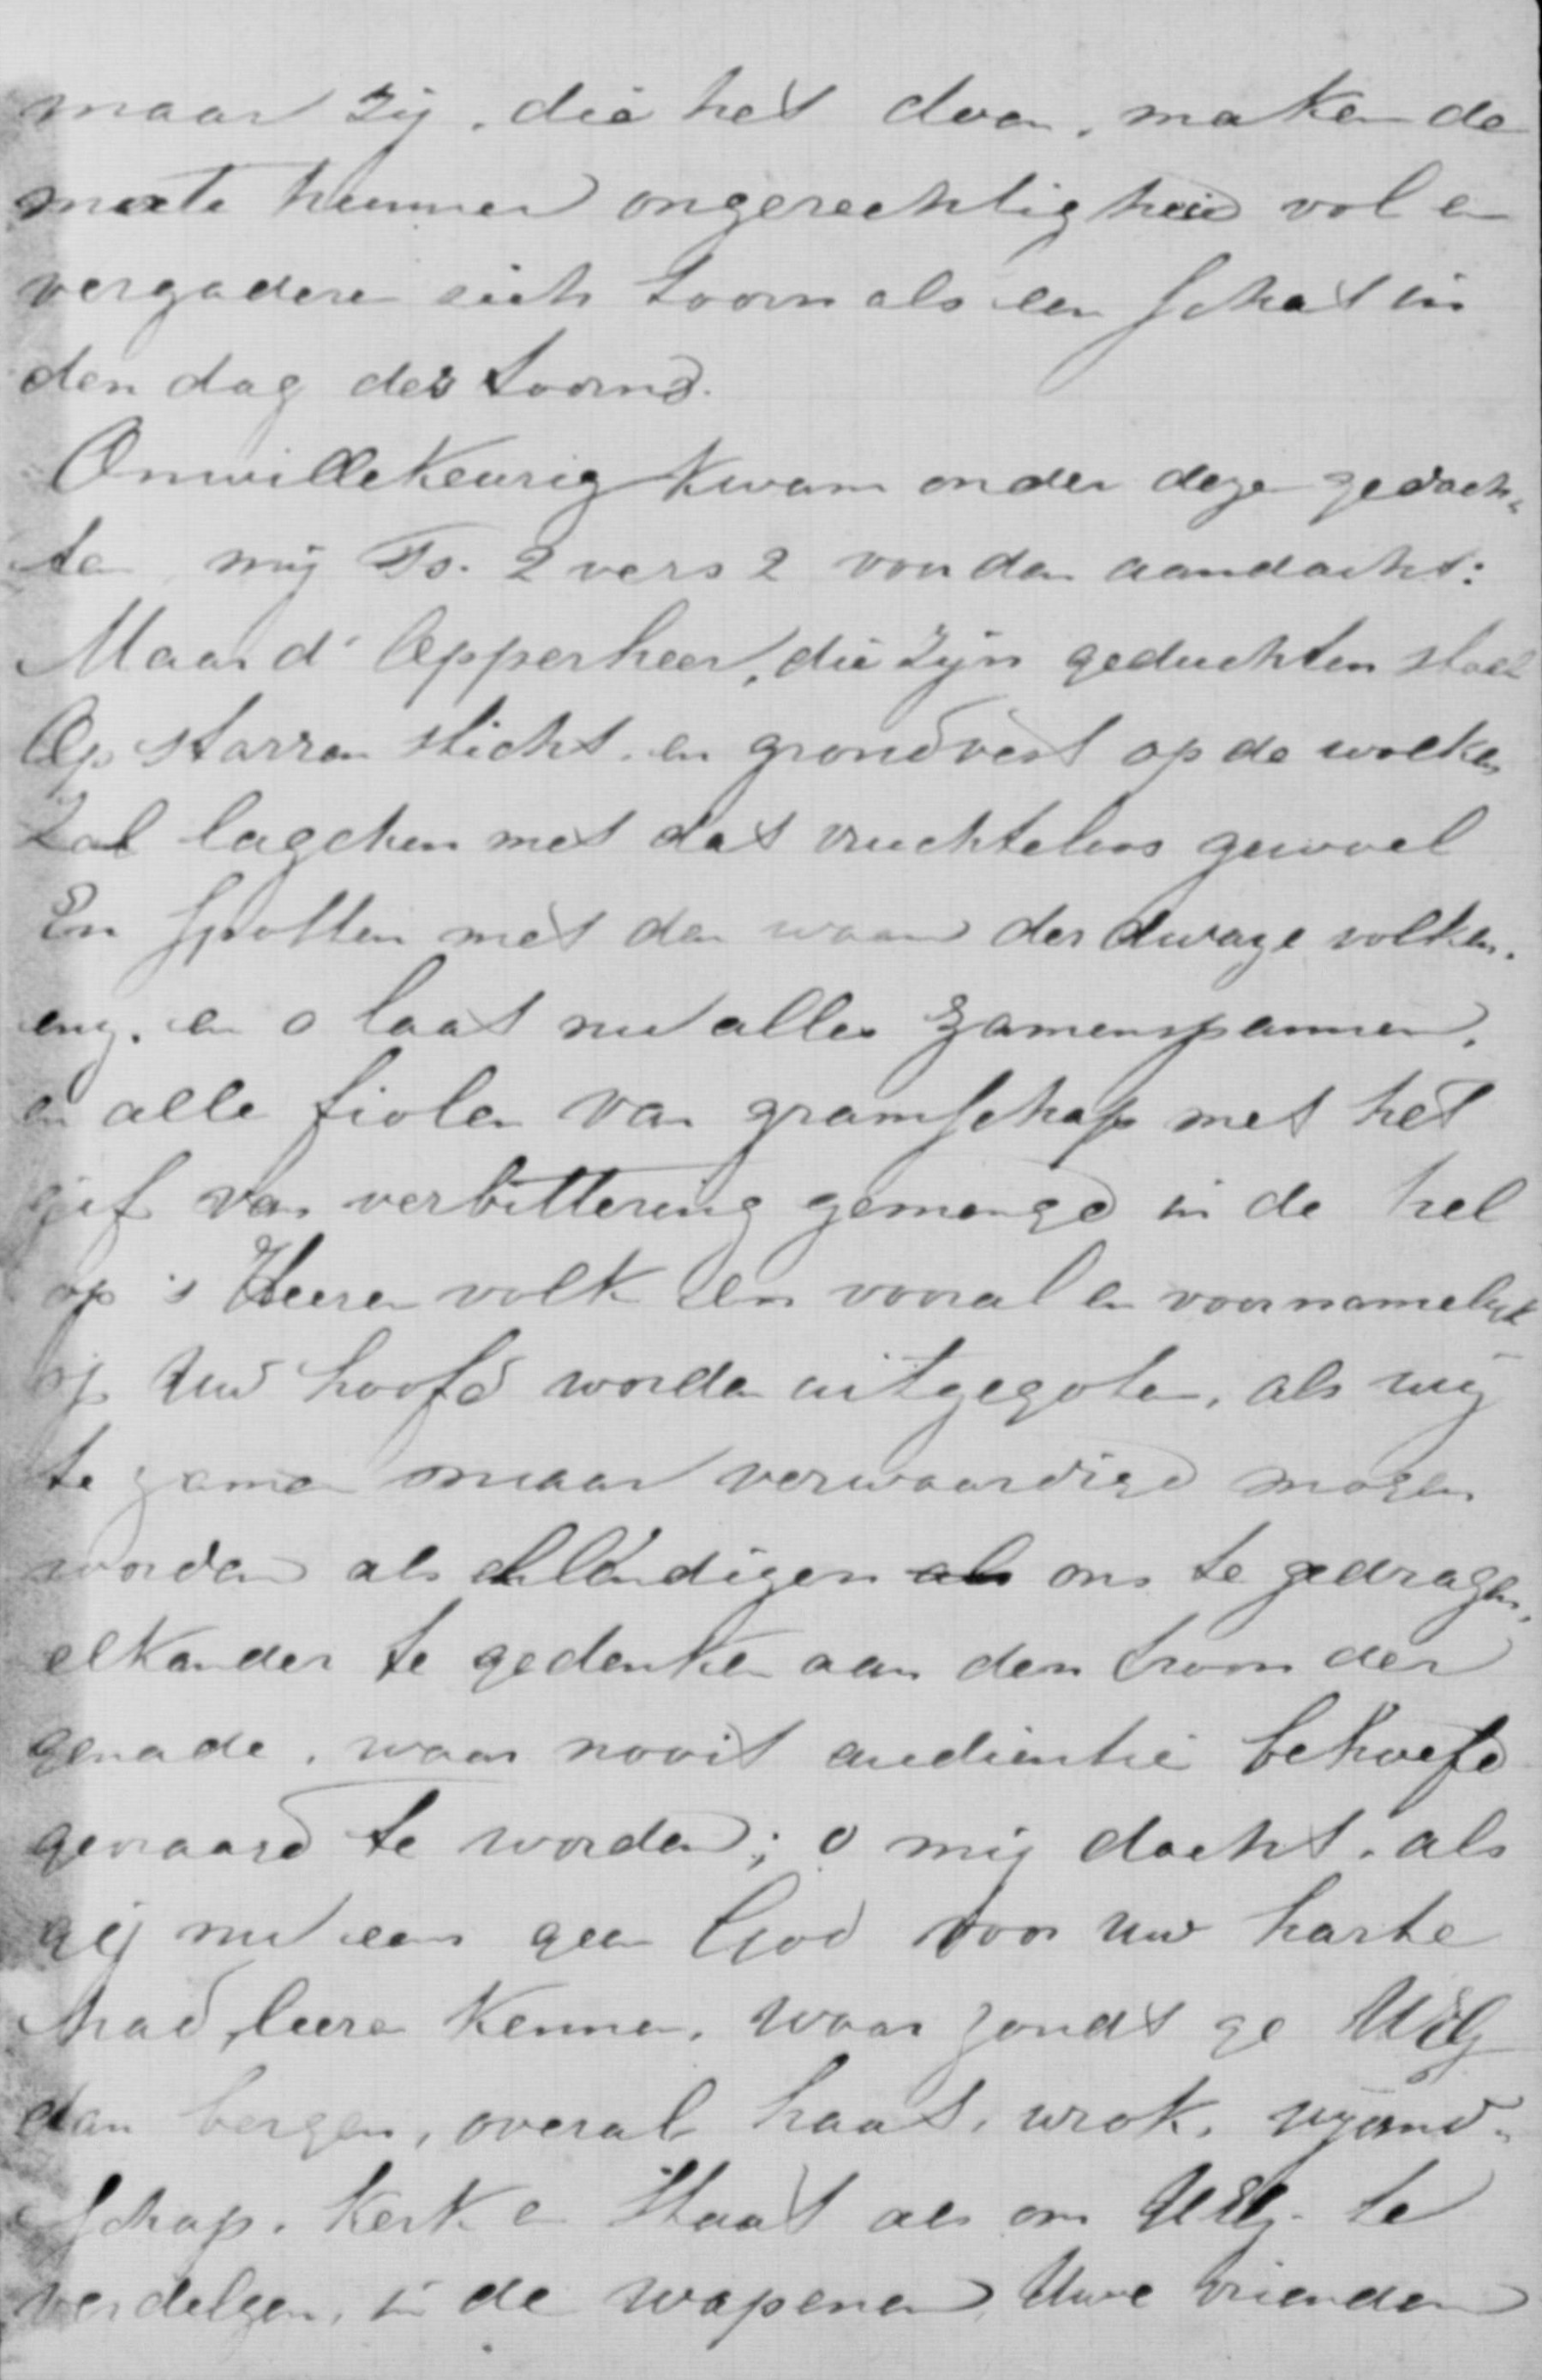 maar zij, die het doen, maken de
mate hunner ongerechtigheid vol en
vergaderen zich toorn als een schat in
den dag des toorns.
Onwillekeurig kwam onder deze gedach-
ten mij Ps. 2 vers 2 onder aandacht:
Maar d' Opperheer, die zijn geduchten stoel
Op starren sticht, en grondvest op de wolken
Zal lagchen met dat vruchteloos gewoel
En spotten met den waan der dwaze volken.
enz. en o laat nu alles zamenspannen,
en alle fiolen van gramschap met het
gif van verbittering gemengd in de hel
op 's Heeren volk en vooral en voornamelijk
op Uw hoofd worden uitgegoten, als wij
te zamen maar verwaardigd mogen
worden als ellendigen als ons te gedragen,
elkander te gedenken aan den troon der
genade, waar nooit audientie behoefd
gevraagd te worden; o mij dacht, als
gij nu eens geen God voor uw harte
had leeren kennen, waar zoudt ge UEG
dan bergen, overal haat, wrok, vijand-
schap. Kerk en Staat als om UEG. te
verdelgen, in de wapenen, Uwe vrienden